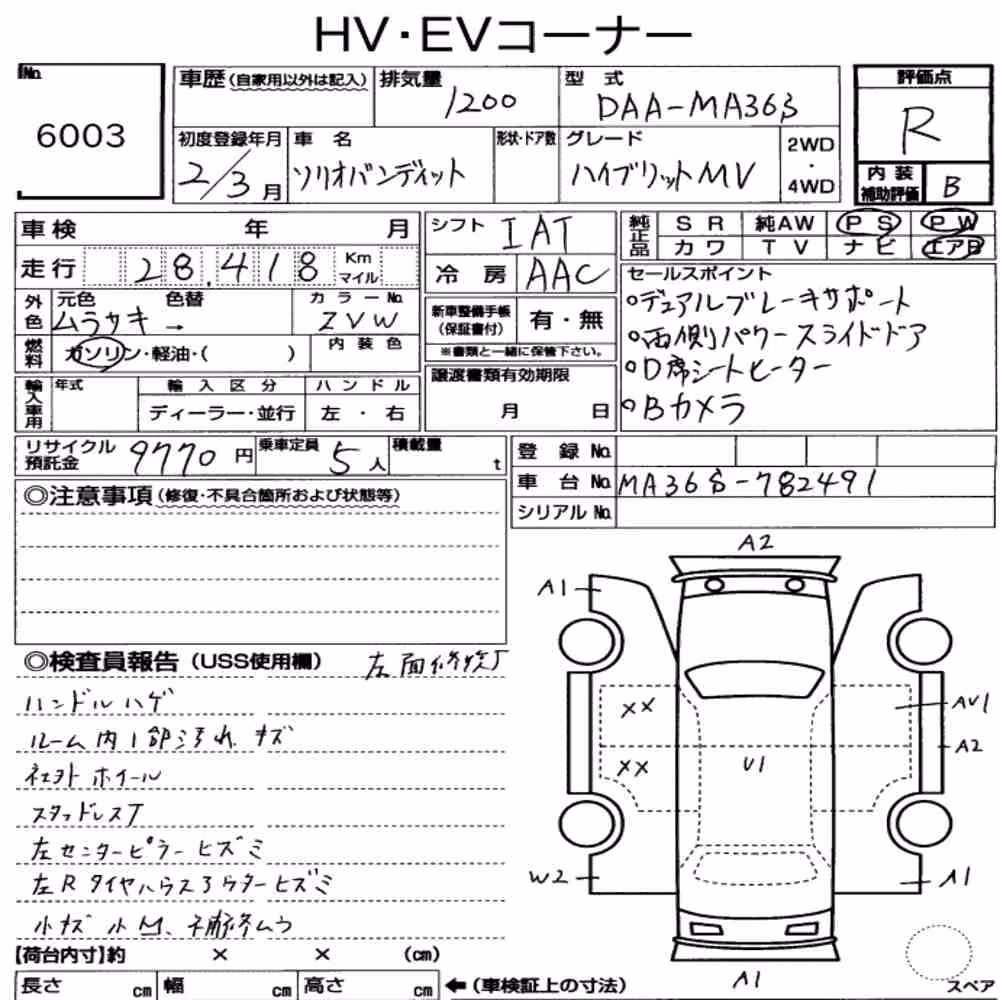 HV・EVコーナー
No.
6003
車歴(自家用以外は記入)
排気量
1200
型式
DAA-MA36S
評価点
R
初度登録年月
2/3月
車名
ソリオバンディット
形状・ドア数
グレード
ハイブリットMV
2WD
・
4WD
内装
補助評価
B
車検 年 月
シフト
IAT
純正品
SR 純AW PS PW
カワ TV ナビ エアB
走行
28,418
Km
マイル
冷房
AAC
セールスポイント
○デュアルブレーキサポート
○両側パワースライドドア
○D席シートヒーター
○Bカメラ
外色
元色 色替
ムラサキ →
カラーNo.
ZVW
新車整備手帳
(保証書付)
有・無
※書類と一緒に保管下さい。
燃料
ガソリン・軽油・( )
内装色
輸入車用
年式
輸入区分
ディーラー・並行
ハンドル
左・右
譲渡書類有効期限
月 日
リサイクル
預託金
9770円
乗車定員
5人
積載量
t
登録No.
車台No.
MA36S-782491
シリアルNo.
◎注意事項(修復・不具合箇所および状態等)
◎検査員報告(USS使用欄)
左面修交
ハンドルハゲ
ルーム内1部汚れ、キズ
社外ホイール
スタッドレスT
左センターピラーヒズミ
左Rタイヤハウスアウターヒズミ
小キズ小凹、
A2
A1
XX
XX
U1
AU1
A2
W2
A1
A1
スペア
【荷台内寸】約 × × (cm)
長さ cm 幅 cm 高さ cm ←(車検証上の寸法)